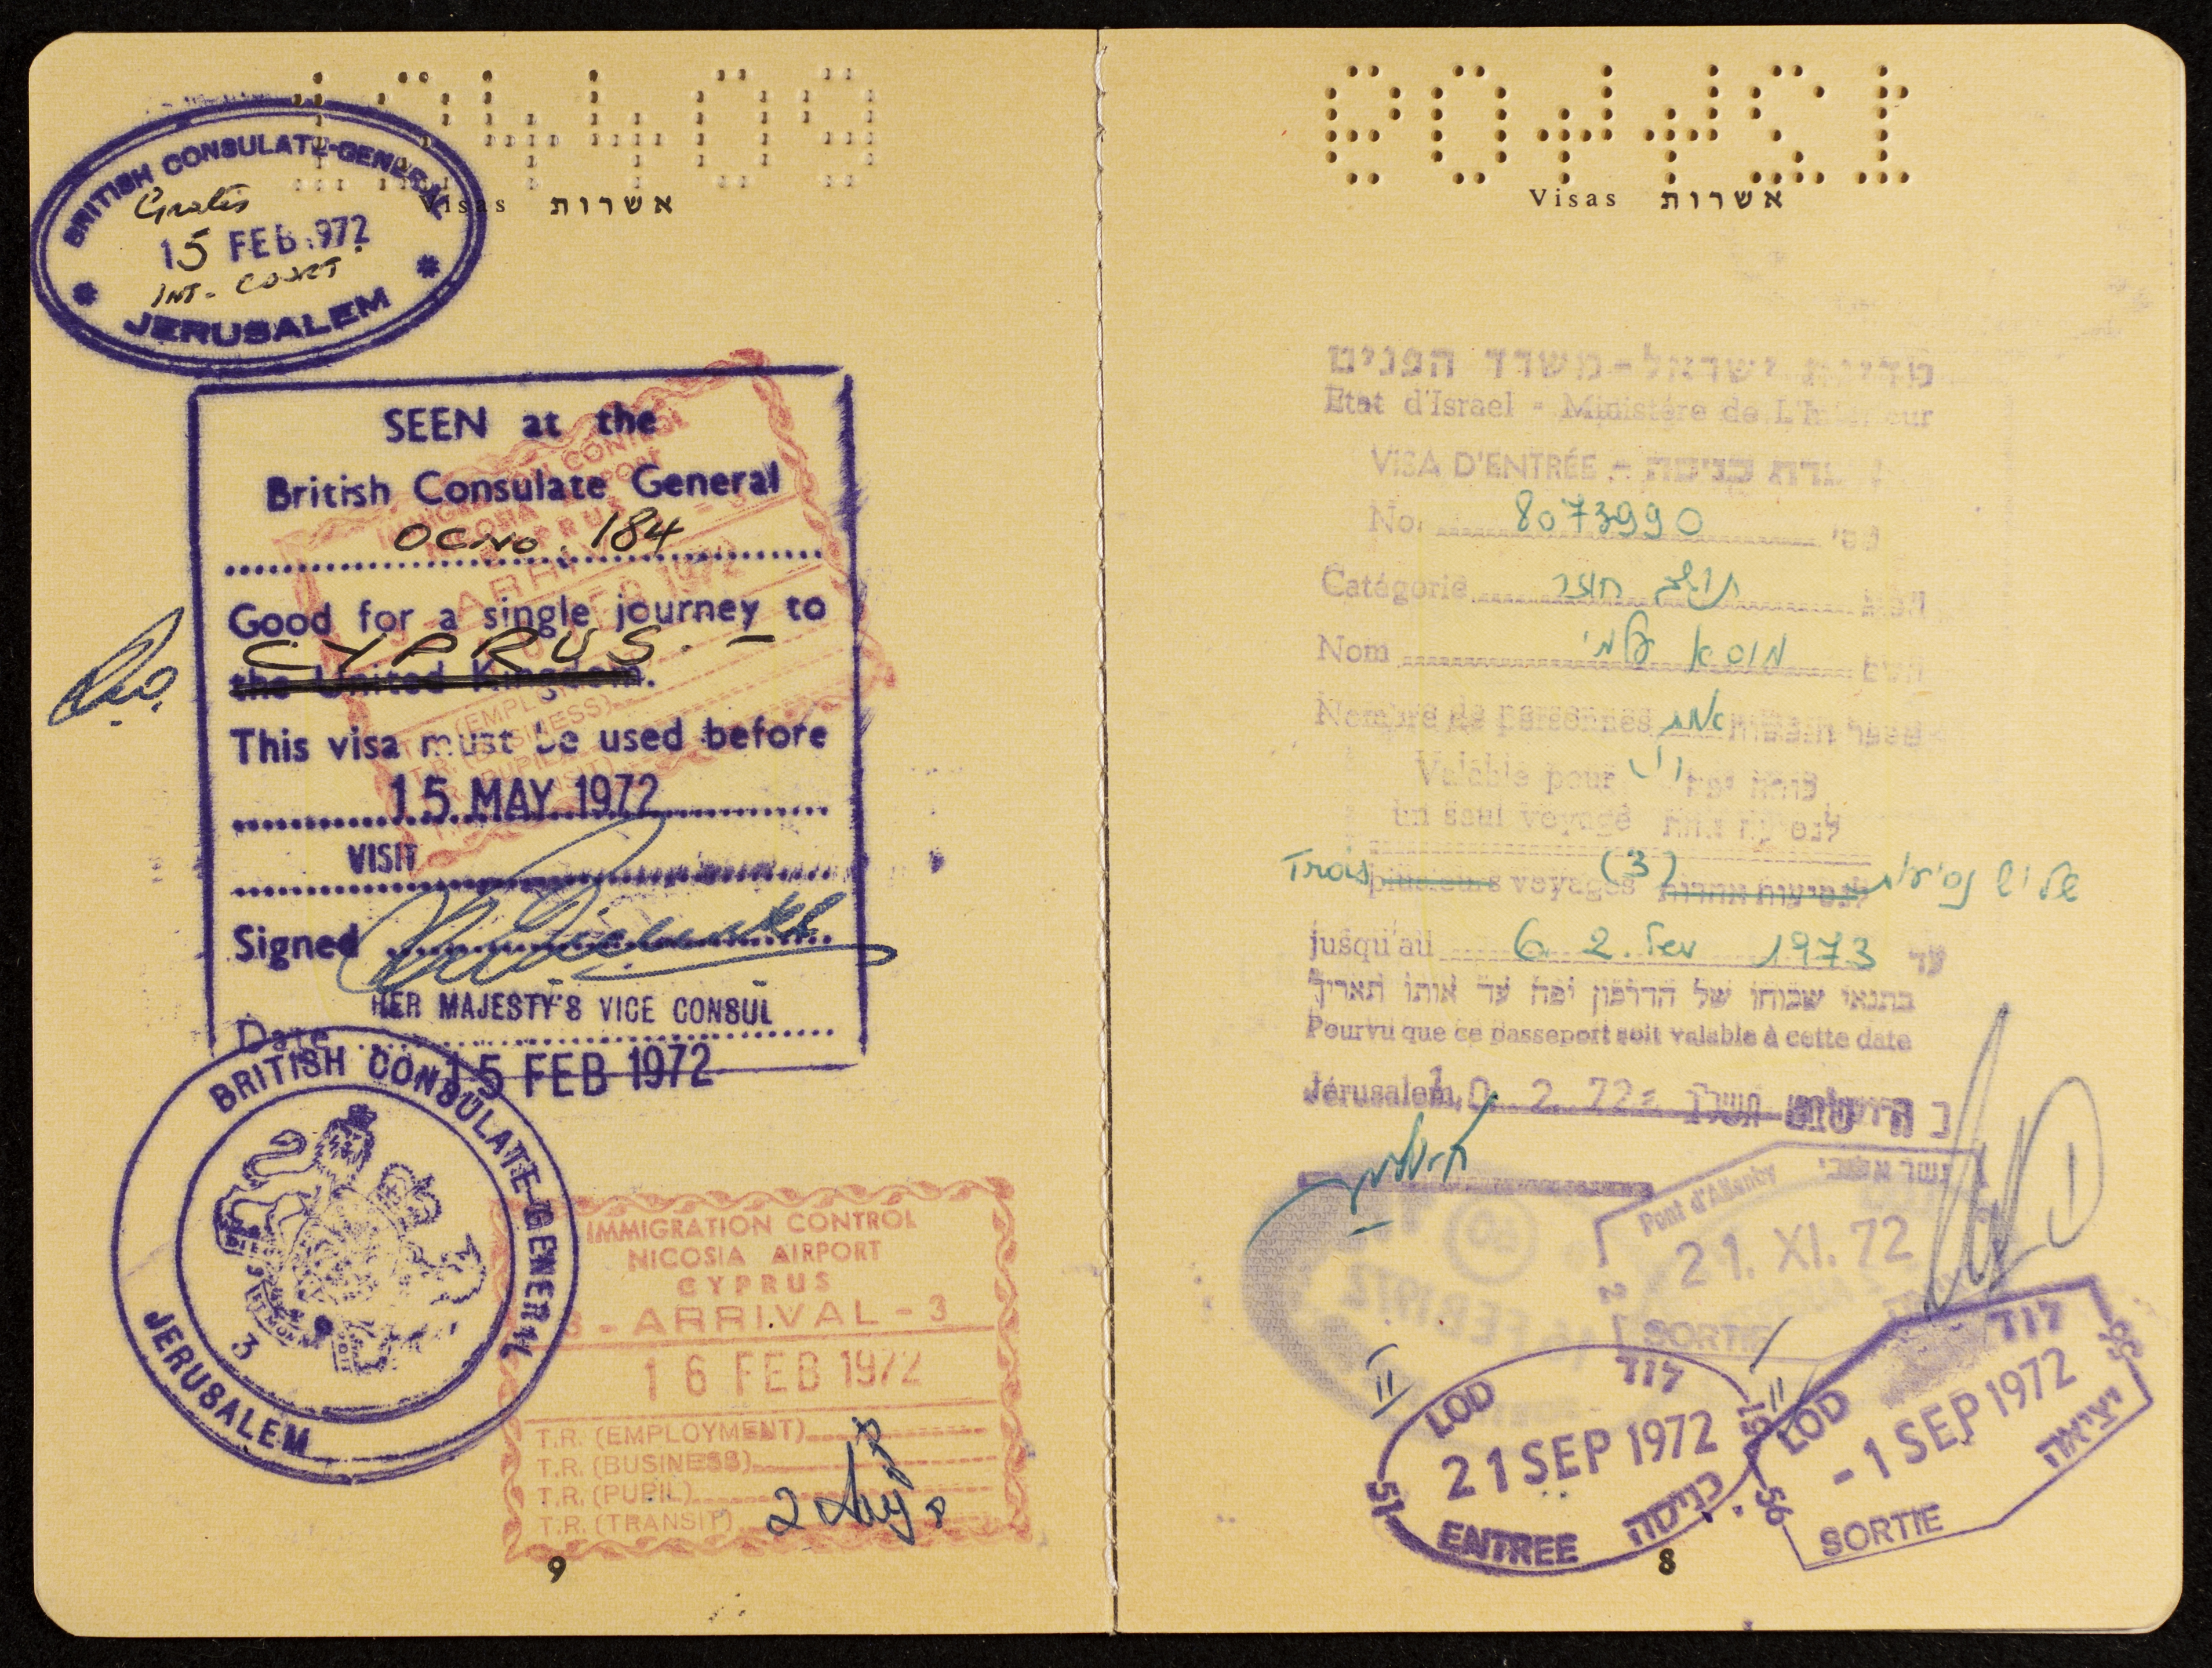 BRITISH CONSULATE-GENERAL
Gratis
15 FEB 1972
INT- COURT
JERUSALEM
Visas אשרות
SEEN at the
British Consulate General
OC no. 184
Good for a single journey to
CYPRUS. -
the United Kingdom.
This visa must be used before
15 MAY 1972
VISIT
Signed
HER MAJESTY'S VICE CONSUL
Date
15 FEB 1972
BRITISH CONSULATE-GENERAL
3
JERUSALEM
IMMIGRATION CONTROL
NICOSIA AIRPORT
CYPRUS
3 - ARRIVAL - 3
16 FEB 1972
T.R. (EMPLOYMENT)
T.R. (BUSINESS)
T.R. (PUPIL)
T.R. (TRANSIT)
9
127409
Visas אשרות
מדינת ישראל - משרד הפנים
Etat d'Israel - Ministére de L'Interieur
VISA D'ENTRÉE - אשרת כניסה
No. 8073990 מס'
Catégorie תושב חוזר הסוג
Nom מוסא עלמי השם
Nombre de personnes אחת מספר הנפשות
Valable pour
un seul voyage לנסיעה אחת
Trois plusieurs voyages (3) שלוש נסיעות
jusqu'au 6 2. 1973 עד
בתנאי שכוחו של הדרכון יפה עד אותו תאריך
Pourvu que ce passeport soit valable à cette date
Jérusalem, 10. 2. 72 = תשל"ב
Pont d'Allenby גשר אלנבי
21. XI. 72
SORTIE
LOD לוד
21 SEP 1972
51
ENTREE כניסה
LOD לוד
- 1 SEP 1972
56
SORTIE יציאה
8